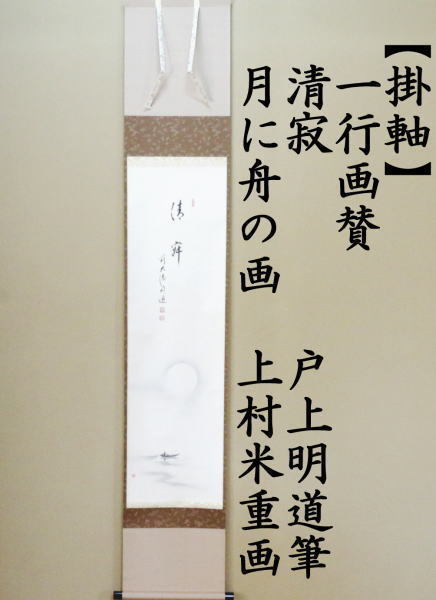 【掛軸】
一行画賛
清寂 戸上明道筆
月に舟の画 上村米重画
清寂